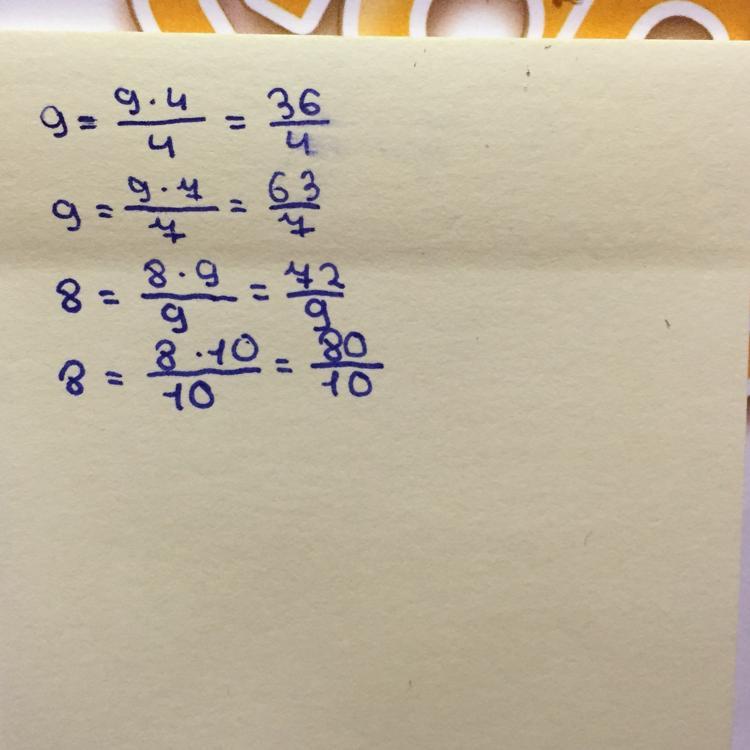 9 = 9·4/4 = 36/4
9 = 9·7/7 = 63/7
8 = 8·9/9 = 72/9
8 = 8·10/10 = 80/10